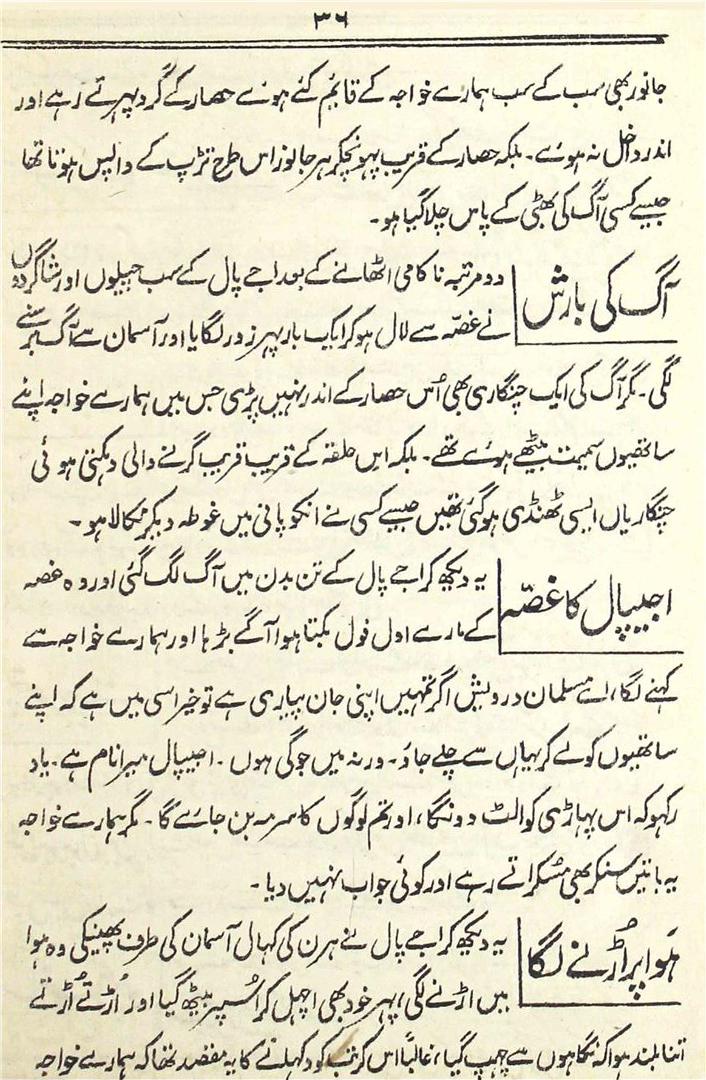 ۳۶
جانور بھی سب کے سب ہمارے خواجہ کے قایُم کئے ہوے حصار کے گرد پہرتے رہے اور
اندر داخل نہ ہوے۔ بلکہ حصار کے قریب پہونچکر ہر جانور اس طرح تڑپ کے واپس ہوتا تھا
جیسے کسی آگ کی بھٹی کے پاس چلا گیا ہو۔
آگ کی بارش
دو مرتبہ ناکامی اٹھانے کے بعد اجے پال کے سب چیلوں اور شاگردوں
نے غصّہ سے لال ہو کر ایک بار پہر زور لگایا اور آسمان سے آگ برسنے
لگی۔ مگر آگ کی ایک چنگاری بھی اُس حصار کے اندر نہیں پڑی جس میں ہمارے خواجہ اپنے
ساتھیوں سمیت بیٹھے ہوے تھے۔ بلکہ اس حلقہ کے قریب قریب گرنے والی دہکتی ہوئی
چنگاریاں ایسی ٹھنڈی ہو گئی تھیں جیسے کسی نے انکو پانی میں غوطہ دیکر نکالا ہو۔
اجیپال کا غصّہ
یہ دیکھ کر اجے پال کے تن بدن میں آگ لگ گئی اور وہ غصہ
کے مارے اول فول بکتا ہوا آگے بڑہا اور ہمارے خواجہ سے
کہنے لگا، اے مسلمان درویش اگر تمہیں اپنی جان پیاری ہے تو خیر اسی میں ہے کہ اپنے
ساتھیوں کو لے کر یہاں سے چلے جاؤ۔ ورنہ میں جوگی ہوں۔ اجیپال میرا نام ہے۔ یاد
رکہو کہ اس پہاڑی کو الٹ دونگا، اور تم لوگوں کا سرمہ بن جاے گا۔ مگر ہمارے خواجہ
یہ باتیں سنکر بھی مسکراتے رہے اور کوئی جواب نہیں دیا۔
ہَوا پر اُڑنے لگا
یہ دیکھ کر اجے پال نے ہرن کی کہال آسمان کی طرف پھینکی وہ ہوا
میں اڑنے لگی، پہر خود بھی اچھل کر اُسپر بیٹھ گیا اور اُڑتے اُڑتے
اتنا بلند ہوا کہ نگاہوں سے چھپ گیا، غالباً اس کرتب کو دکہلانے کا یہ مقصد تھا کہ ہمارے خواجہ